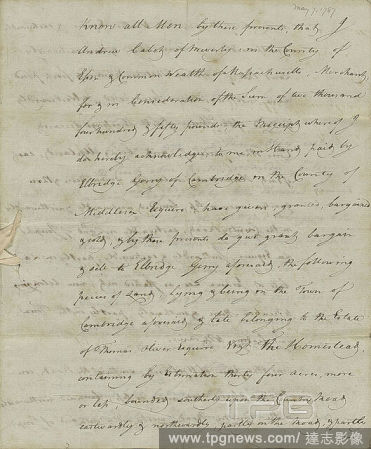 May 7. 1787
Know all Men by these presents, that I
Andrew Cabot of Beverly in the County of
Essex & Common Wealth of Massachusetts, Merchant,
for & in Consideration of the Sum of two thousand
four hundred & fifty pounds the Receipt whereof I
do hereby acknowledge to me in Hand paid by
Elbridge Gerry of Cambridge in the County of
Middlesex Esquire, have given, granted, bargained
& sold, & by these presents do give grant, bargain
& sell to Elbridge Gerry aforesaid the following
pieces of Land lying & being in the Town of
Cambridge aforesaid, & late belonging to the Estate
of Thomas Oliver Esquire Vizt. The Homestead,
containing by Estimation thirty four acres, more
or less, bounded southerly upon the County Road
eastwardly & northwardly, partly on the Road, & partly
TPG
www.tpgnews.com / 達志影像